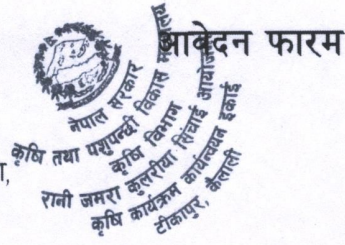 आवेदन फारम
नेपाल सरकार
कृषि तथा पशुपन्छी विकास
कृषि विभाग
रानी जमरा कुलरीया सिंचाई आयोजना
कृषि कार्यक्रम कार्यन्वयन इकाई
टीकापुर, कैलाली